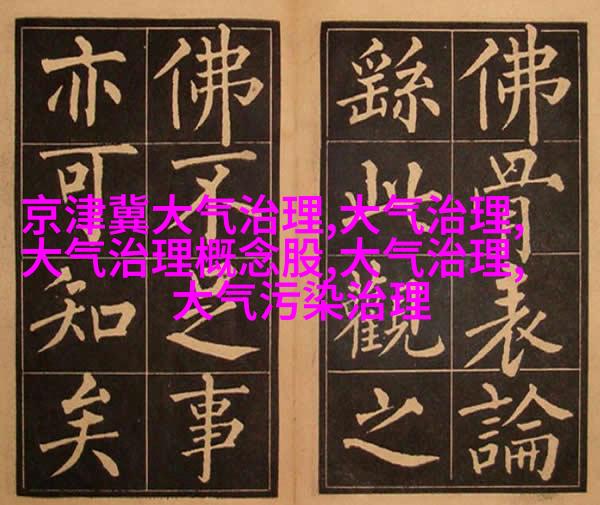 佛骨表論
繇此觀之
佛不足事
亦可知矣
京津冀大气治理,大气治理,
大气治理概念股,大气治理,
大气污染治理